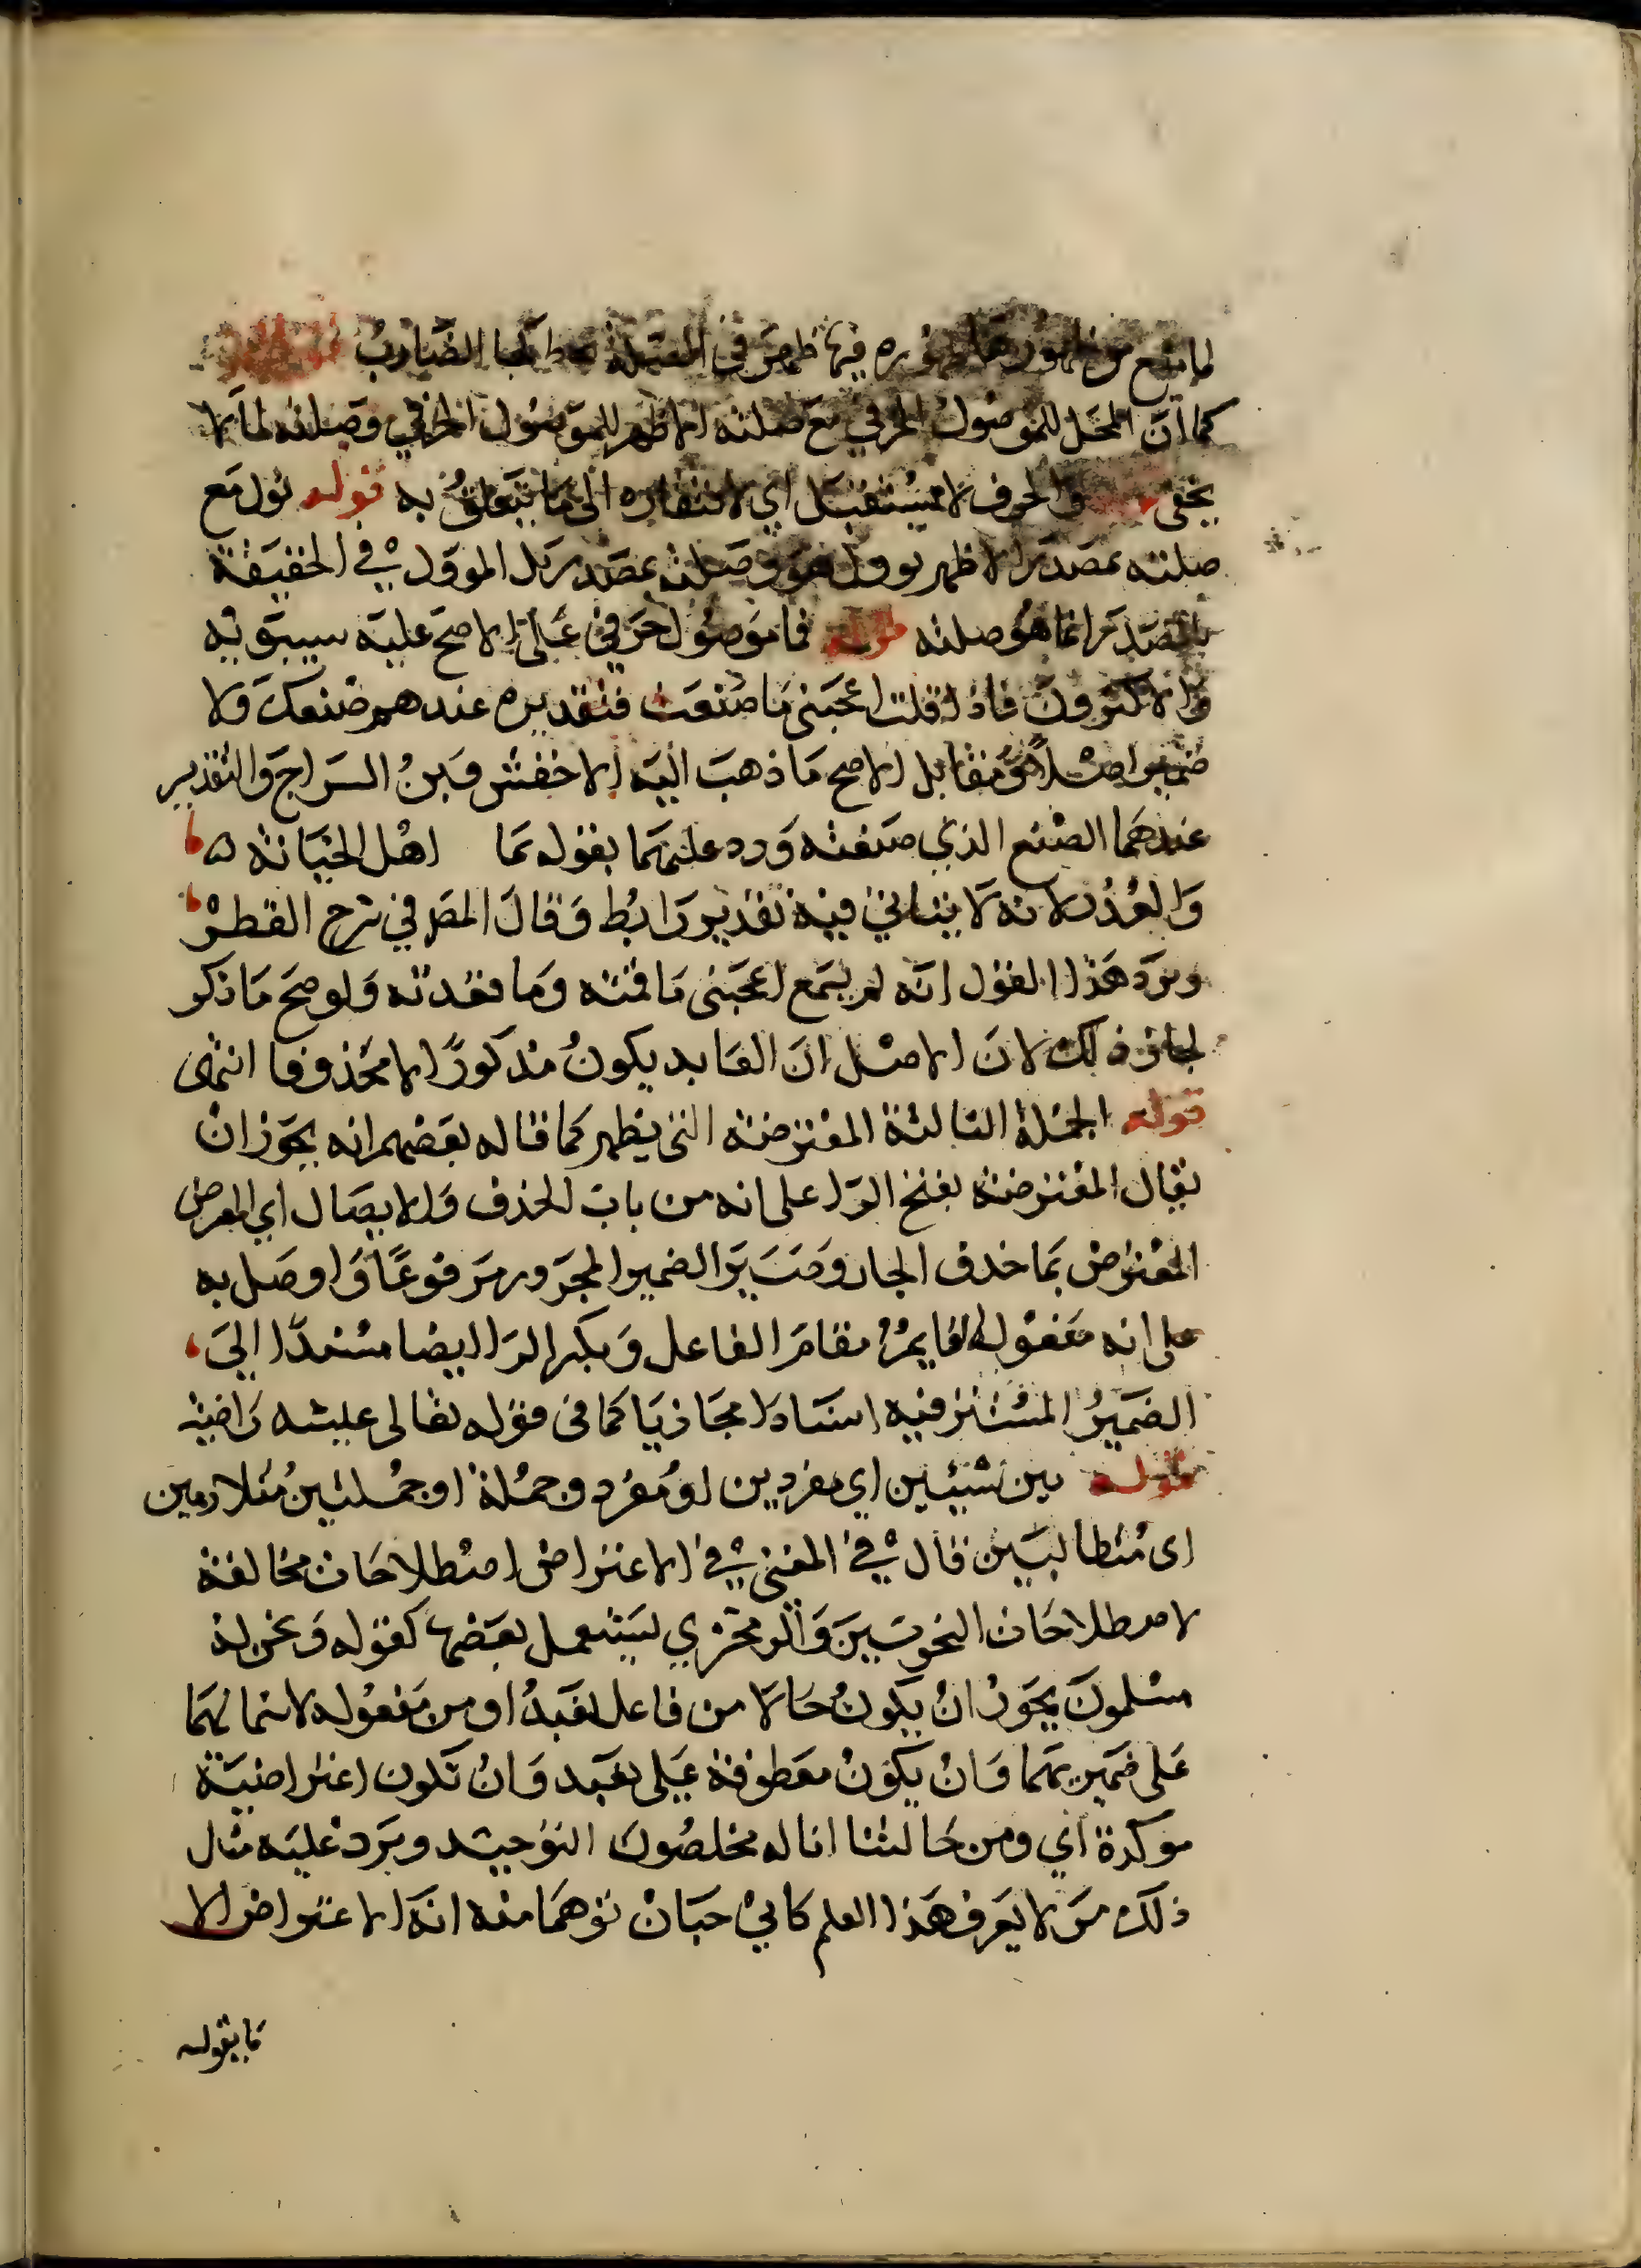 لما منع من ظهورها ظهوره فيها ظهر في الصلة كما الضارب
كما ان المحل للموصول الحرفي مع صلته اذ لا ظهر للموصول الحرفي وصلته لما لا
يخفى والحرف لا يستقبل اي لافتقاره الى ما يتعلق به قوله تول مع
صلته بمصدر الاظهر توول هو وصلته بمصدر بل الموول في الحقيقة
بالمصدر انما هو صلته قوله فما موصول حرفي على الاصح عليه سيبويه
والاكثرون فاذا قلت اعجبني ما صنعت فتقديره عندهم صنعك ولا
ضمير اصلا ومقابل الاصح ما ذهب اليه الاخفش وبن السراج والتقدير
عندهما الصنع الذي صنعته ورد عليهما بقوله بما اهل الخيانة
والغدر لانه لا يتاتي فيه تقدير رابط وقال المصر في شرح القطر
ويرد هذا القول انه لم يسمع اعجبني ما قمته وما قعدته ولو صح ما ذكر
لجاز ذلك لان الاصل ان العايد يكون مذكورا لا محذوفا انتهى
قوله الجملة الثالثة المعترضة التي يظهر كما قاله بعضهم انه يجوز ان
يقال المعترضة بفتح الرا على انه من باب الحذف والايصال اي المعرض
المعترض بما حذف الجار وصير الضمير المجرور مرفوعا واوصل به
على انه مفعوله القايم مقام الفاعل وبكسر الرا ايضا مسندا الى
الضمير المستتر فيه اسنادا مجازيا كما في قوله تعالى عيشه راضية
قوله بين شيئين اي مفردين او مفرد وجملة او جملتين متلازمين
اي متطالبين قال في المغني في الاعتراض اصطلاحات مخالفة
لاصطلاحات النحويين والزمخشري يستعمل بعضها كقوله ونحن له
مسلمون يجوز ان يكون حالا من فاعل نعبد او من مفعوله لاشتمالها
على ضميريهما وان يكون معطوفة على نعبد وان تكون اعتراضية
موكدة اي ومن حالتنا انا له مخلصون التوحيد ويرد عليه مثال
ذلك من لا يعرف هذا العلم كابي حيان توهما منه انه الاعتراض الا
ما يقوله